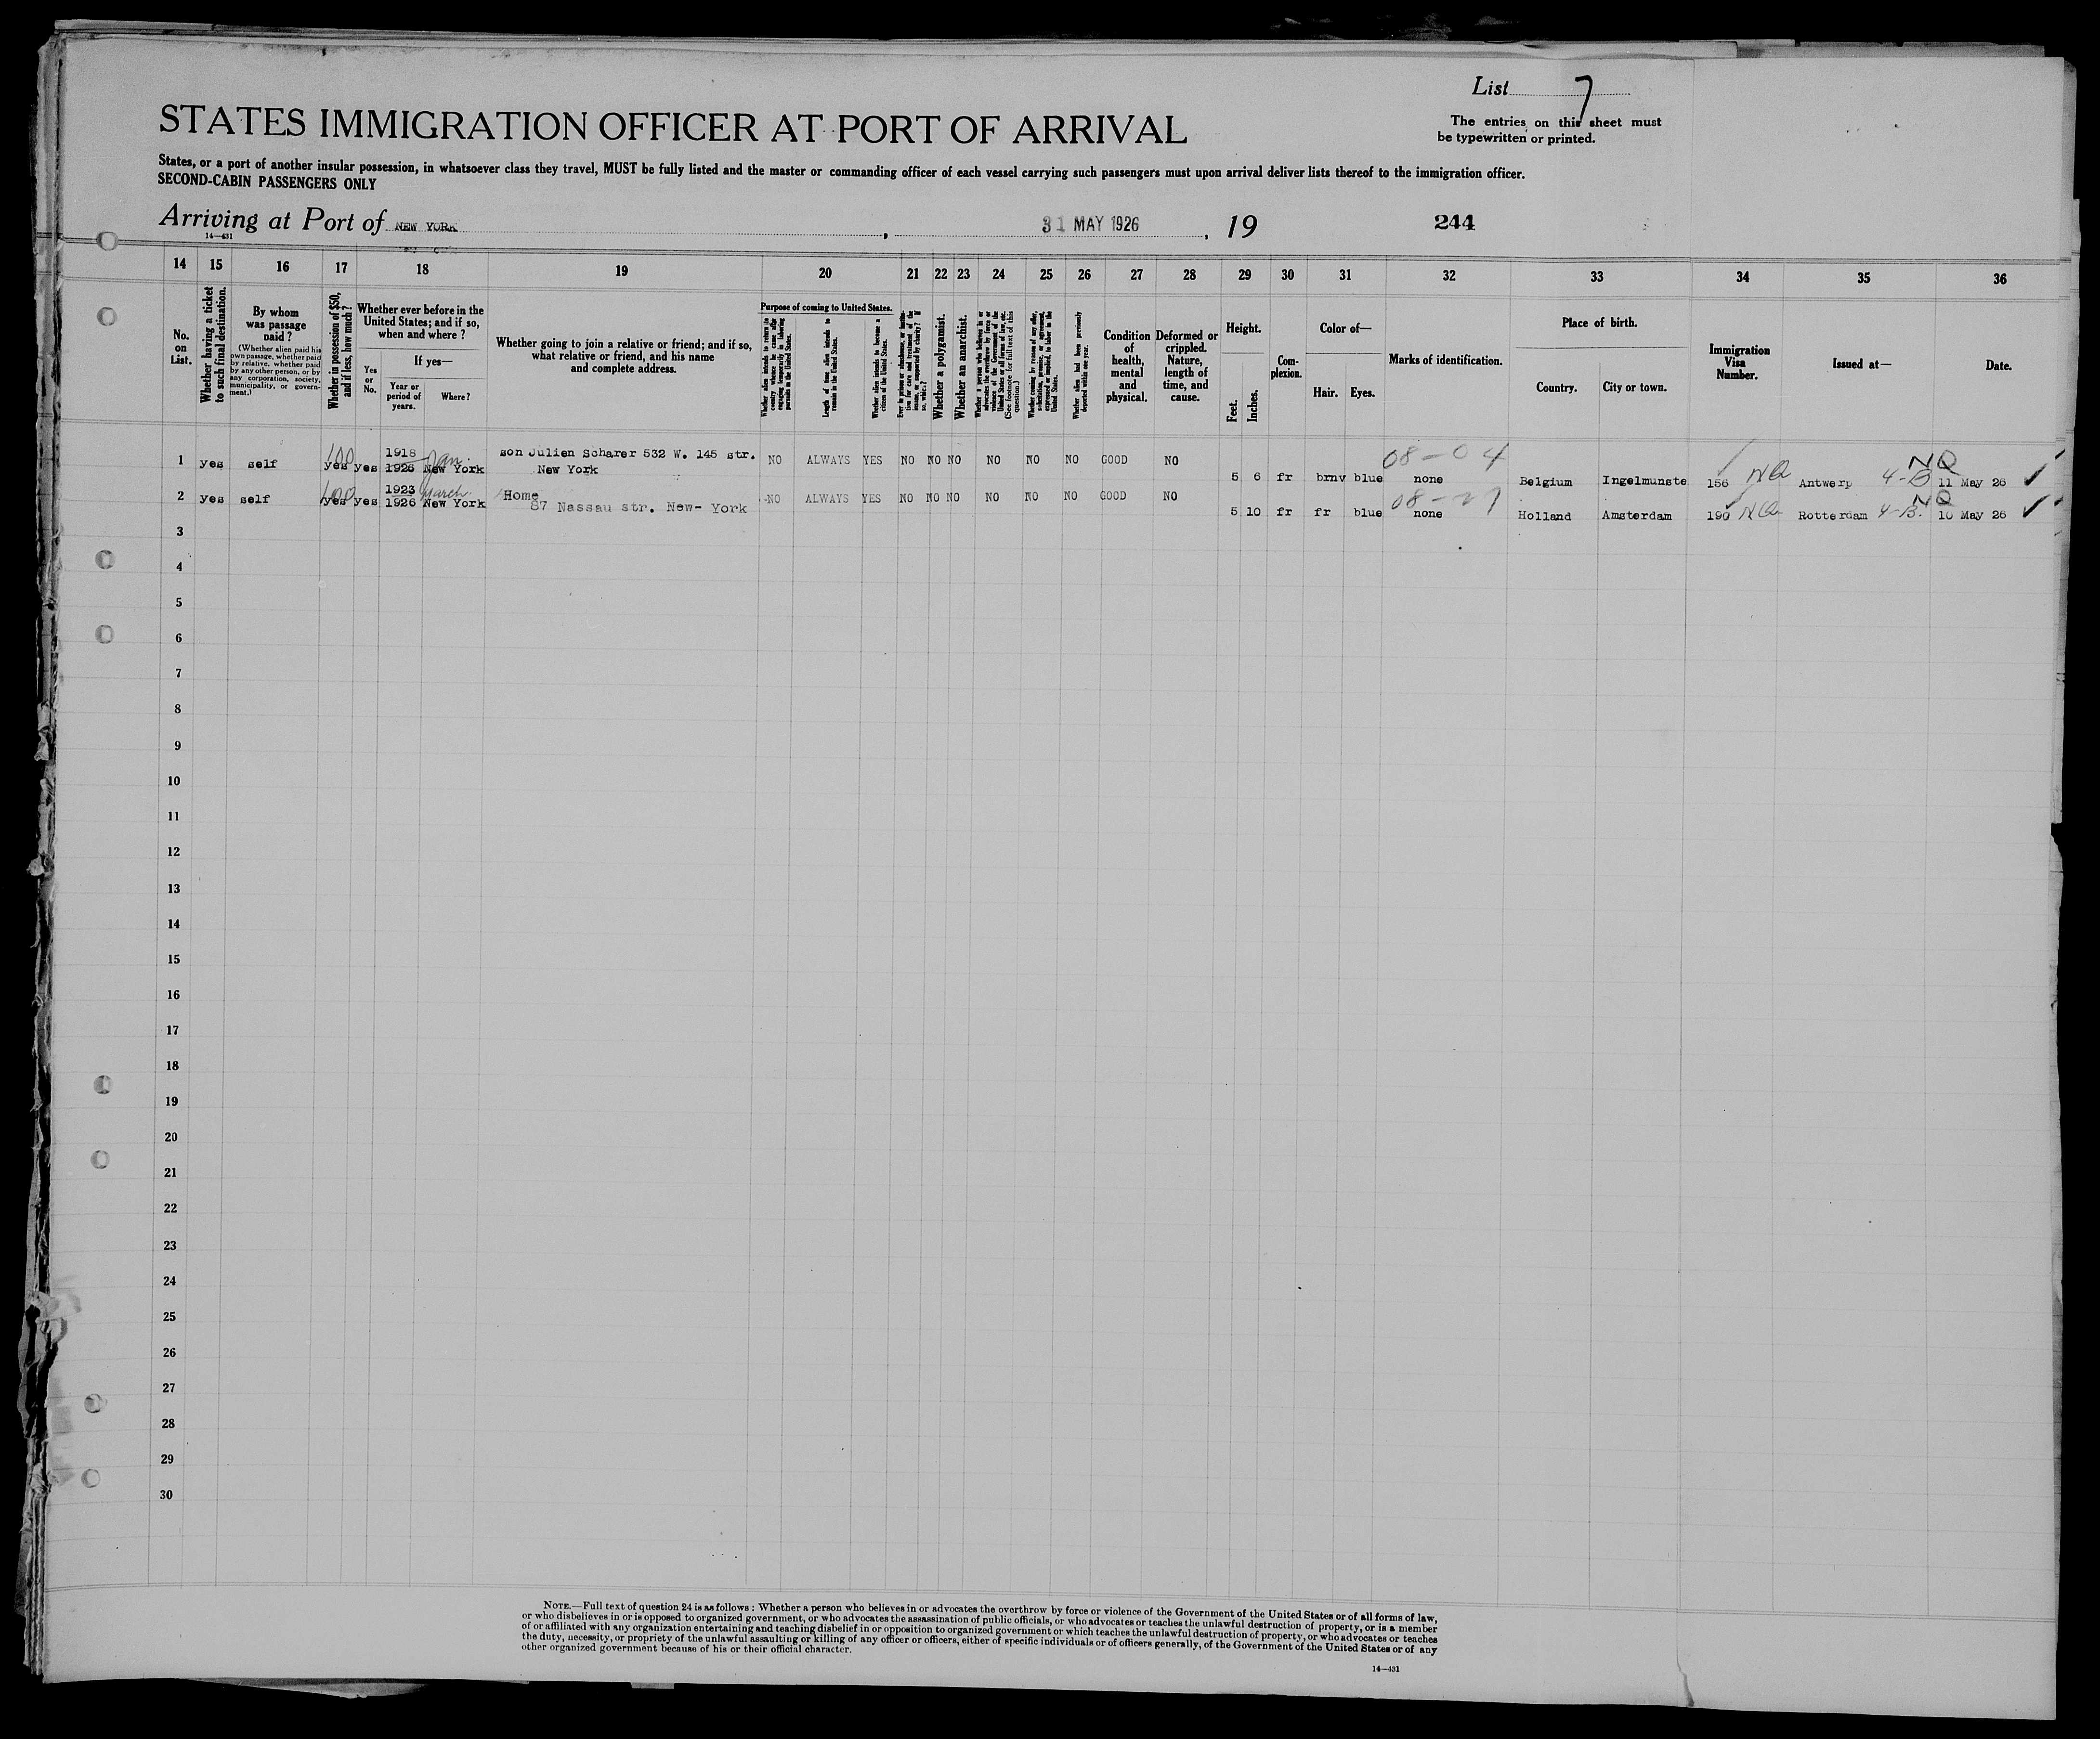 List 7
The entries on this sheet must
be typewritten or printed.
STATES IMMIGRATION OFFICER AT PORT OF ARRIVAL
States, or a port of another insular possession, in whatsoever class they travel, MUST be fully listed and the master or commanding officer of each vessel carrying such passengers must upon arrival deliver lists thereof to the immigration officer.
SECOND-CABIN PASSENGERS ONLY
Arriving at Port of NEW YORK, 31 MAY 1926, 19 244
14—431
14 15 16 17 18 19 20 21 22 23 24 25 26 27 28 29 30 31 32 33 34 35 36
No. on List.
Whether having a ticket to such final destination.
By whom was passage paid?
(Whether alien paid his own passage, whether paid by relative, whether paid by any other person, or by any corporation, society, municipality, or government.)
Whether in possession of $50, and if less, how much?
Whether ever before in the United States; and if so, when and where?
Yes or No.
If yes—
Year or period of years.
Where?
Whether going to join a relative or friend; and if so, what relative or friend, and his name and complete address.
Purpose of coming to United States.
Whether alien intends to return to country whence he came after engaging temporarily in laboring pursuits in the United States.
Length of time alien intends to remain in the United States.
Whether alien intends to become a citizen of the United States.
Ever in prison or almshouse, or institution for care and treatment of the insane, or supported by charity? If so, which?
Whether a polygamist.
Whether an anarchist.
Whether a person who believes in or advocates the overthrow by force or violence of the Government of the United States or all forms of law, etc. (See footnote for full text of this question.)
Whether coming by reason of any offer, solicitation, promise, or agreement, expressed or implied, to labor in the United States.
Whether alien had been previously deported within one year.
Condition of health, mental and physical.
Deformed or crippled. Nature, length of time, and cause.
Height.
Feet.
Inches.
Complexion.
Color of—
Hair.
Eyes.
Marks of identification.
Place of birth.
Country.
City or town.
Immigration Visa Number.
Issued at—
Date.
1 yes self 100 yes yes 1918 1926 Jan. New York son Julien Scharer 532 W. 145 str. New York NO ALWAYS YES NO NO NO NO NO NO GOOD NO 5 6 fr brnv blue 08-04 none Belgium Ingelmunste 156 NQ Antwerp 4-B NQ 11 May 26
2 yes self 100 yes yes 1923 1926 March New York Home 87 Nassau str. New-York NO ALWAYS YES NO NO NO NO NO NO GOOD NO 5 10 fr fr blue 08-27 none Holland Amsterdam 190 NQ Rotterdam 4-B. NQ 10 May 26
3
4
5
6
7
8
9
10
11
12
13
14
15
16
17
18
19
20
21
22
23
24
25
26
27
28
29
30
NOTE.—Full text of question 24 is as follows: Whether a person who believes in or advocates the overthrow by force or violence of the Government of the United States or of all forms of law,
or who disbelieves in or is opposed to organized government, or who advocates the assassination of public officials, or who advocates or teaches the unlawful destruction of property, or is a member
of or affiliated with any organization entertaining and teaching disbelief in or opposition to organized government or which teaches the unlawful destruction of property, or who advocates or teaches
the duty, necessity, or propriety of the unlawful assaulting or killing of any officer or officers, either of specific individuals or of officers generally, of the Government of the United States or of any
other organized government because of his or their official character.
14—431